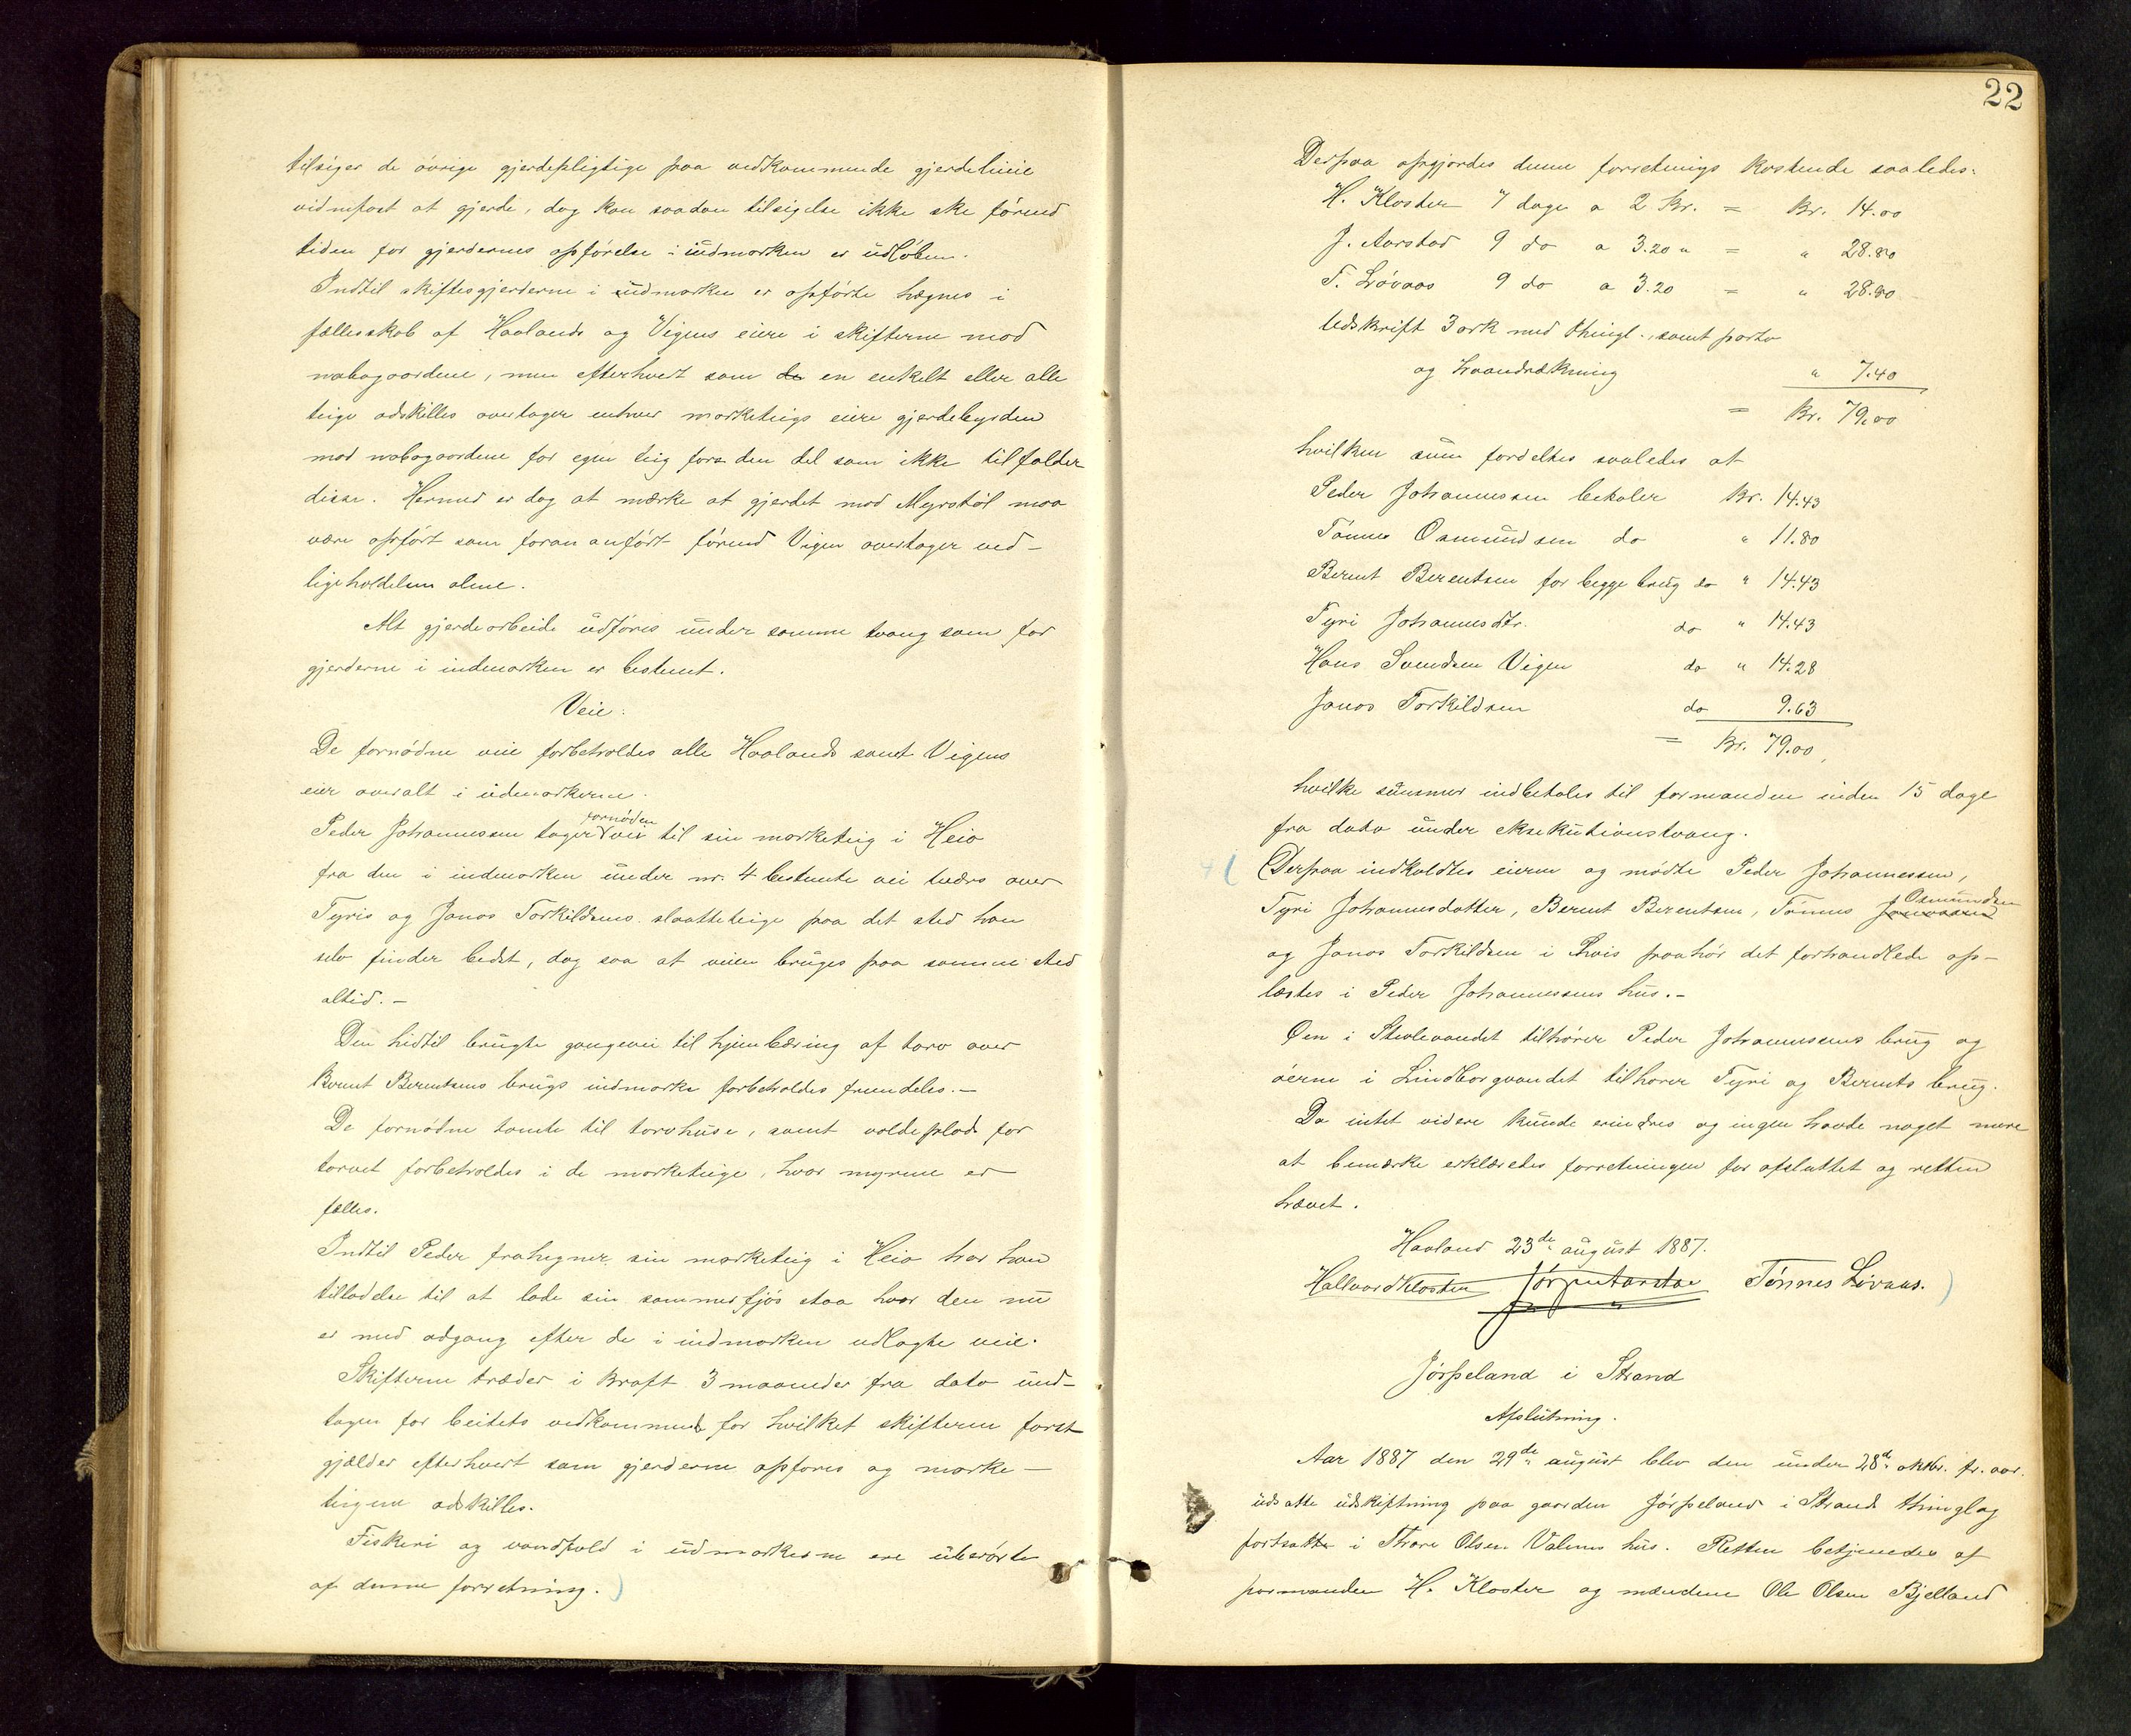 tilsiger de øvrige gjerdepligtige paa vedkommende gjerdelinie
vidnefast at gjerde, dog kan saadan tilsigelse ikke ske førend
tiden for gjerdernes opførelse i udmarken er udløben.
Indtil skiftesgjerderne i udmarken er opførte hægnes i
fællesskab af Haalands og Vigens eiere i skifterne mod
nabogaardene, men efterhvert som de en enkelt eller alle
teige adskilles overtager enhver marketeigs eiere gjerdebyrden
mod nabogaardene for egen teig fora den del som ikke tilfalder
disse. Hermed er dog at mærke at gjerdet mod Myrstøl maa
være opført som foran anført førend Vigen overtager ved-
ligeholdelsen alene.
Alt gjerdearbeide udføres under samme tvang som for
gjerderne i indmarken er bestemt.
Veie:
De fornødne veie forbeholdes alle Haalands samt Vigens
eier overalt i udmarkerne.
fornøden
Peder Johannessen tager vei til sin marketeig i Heia
fra den i indmarken under nr. 4 bestemte vei tværs over
Tyris og Jonas Torkildsens slaatteteige paa det sted han
selv finder bedst, dog saa at veien bruges paa samme sted
altid. -
Den hidtil brugte gangevei til hjembæring af torv over
Berent Berentsens brugs indmark forbeholdes fremdeles. -
De fornødne tomte til torvhuse, samt voldeplads for
torvet forbeholdes i de marketeige, hvor myrene er
fælles.
Indtil Peder frahegner sin marketeig i Heia har han
tilladelse til at lade sin sommerfjøs staa hvor den nu
er med adgang efter de i indmarken udlagte veie.
Skifterne træder i kraft 3 maaneder fra dato und-
tagen for beitets vedkommende for hvilket skifterne først
gjælder efterhvert som gjerderne opføres og marke-
teigene adskilles.
Fiskeri og vandfald i udmarkerne ere uberørte
af denne forretning.)
22
Derpaa opgjordes denne forretnings kostende saaledes:
H. Kloster 7 dage a 2 Kr. = Kr. 14.00
J. Aarstad 9 do a 3.20 " = " 28.80
T. Løvaas 9 do a 3.20 = " 28.80
Udskrift 3 ark med thingl., samt porto
og haandrækning " 7.40
= Kr. 79.00
hvilken sum fordeltes saaledes at
Peder Johannessen betaler Kr. 14.43
Tønnes Osmundsen do " 11.80
Berent Berentsen for begge brug do " 14.43
Tyri Johannesdtr. do " 14.43
Hans Svendsen Vigen do " 14.28
Jonas Torkildsen do 9.63
= Kr. 79.00,
hvilke summer indbetales til formanden inden 15 dage
fra dato under eksekutionstvang.
(Derpaa indkaldtes eierne og mødte Peder Johannessen,
Osmundsen
Tyri Johannesdatter, Berent Berentsen, Tønnes
og Jonas Torkildsen i hvis paahør det forhandlede op-
læstes i Peder Johannessens hus. -
Øen i Stevlevandet tilhører Peder Johannessens brug og
øerne i Lindborgvandet tilhører Tyri og Berents brug.
Da intet videre kunde erindres og ingen havde noget mere
at bemærke erklæredes forretningen for afsluttet og retten
hævet.
Haaland 23de august 1887.
Hallvard Kloster Jørgen Aarstad Tønnes Løvaas.)
Jørpeland i Strand
Afslutning.
Aar 1887 den 29de august blev den under 28de oktbr. fr. aar.
udsatte udskiftning paa gaarden Jørpeland i Strands thinglag
fortsatte i Thore Olsen Valens hus. Retten betjenedes af
formanden H. Kloster og mændene Ole Olsen Bjelland